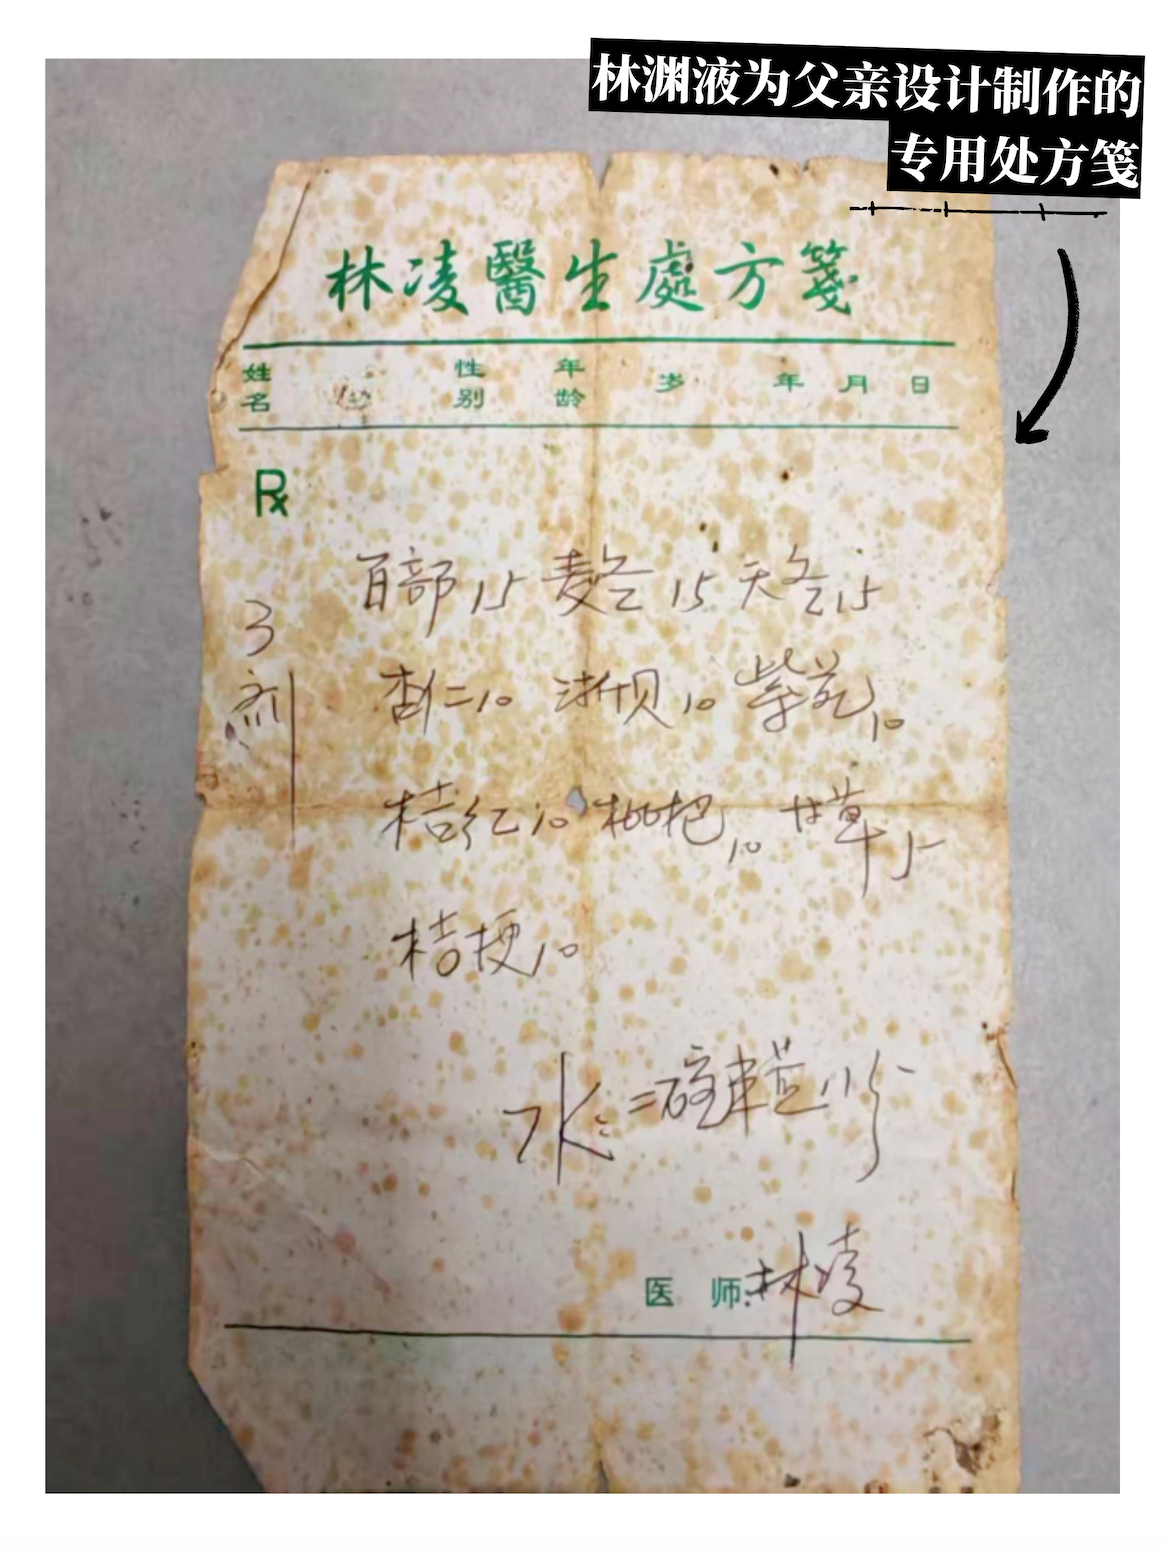 林渊液为父亲设计制作的
专用处方笺
林凌醫生處方箋
姓名 性别 年龄 岁 年 月 日
℞
3剂
百部15 麦冬15 天冬15
杏仁10 浙贝10 紫菀10
桔红10 枇杷10 甘草5
桔梗10
水二碗
医 师:林凌